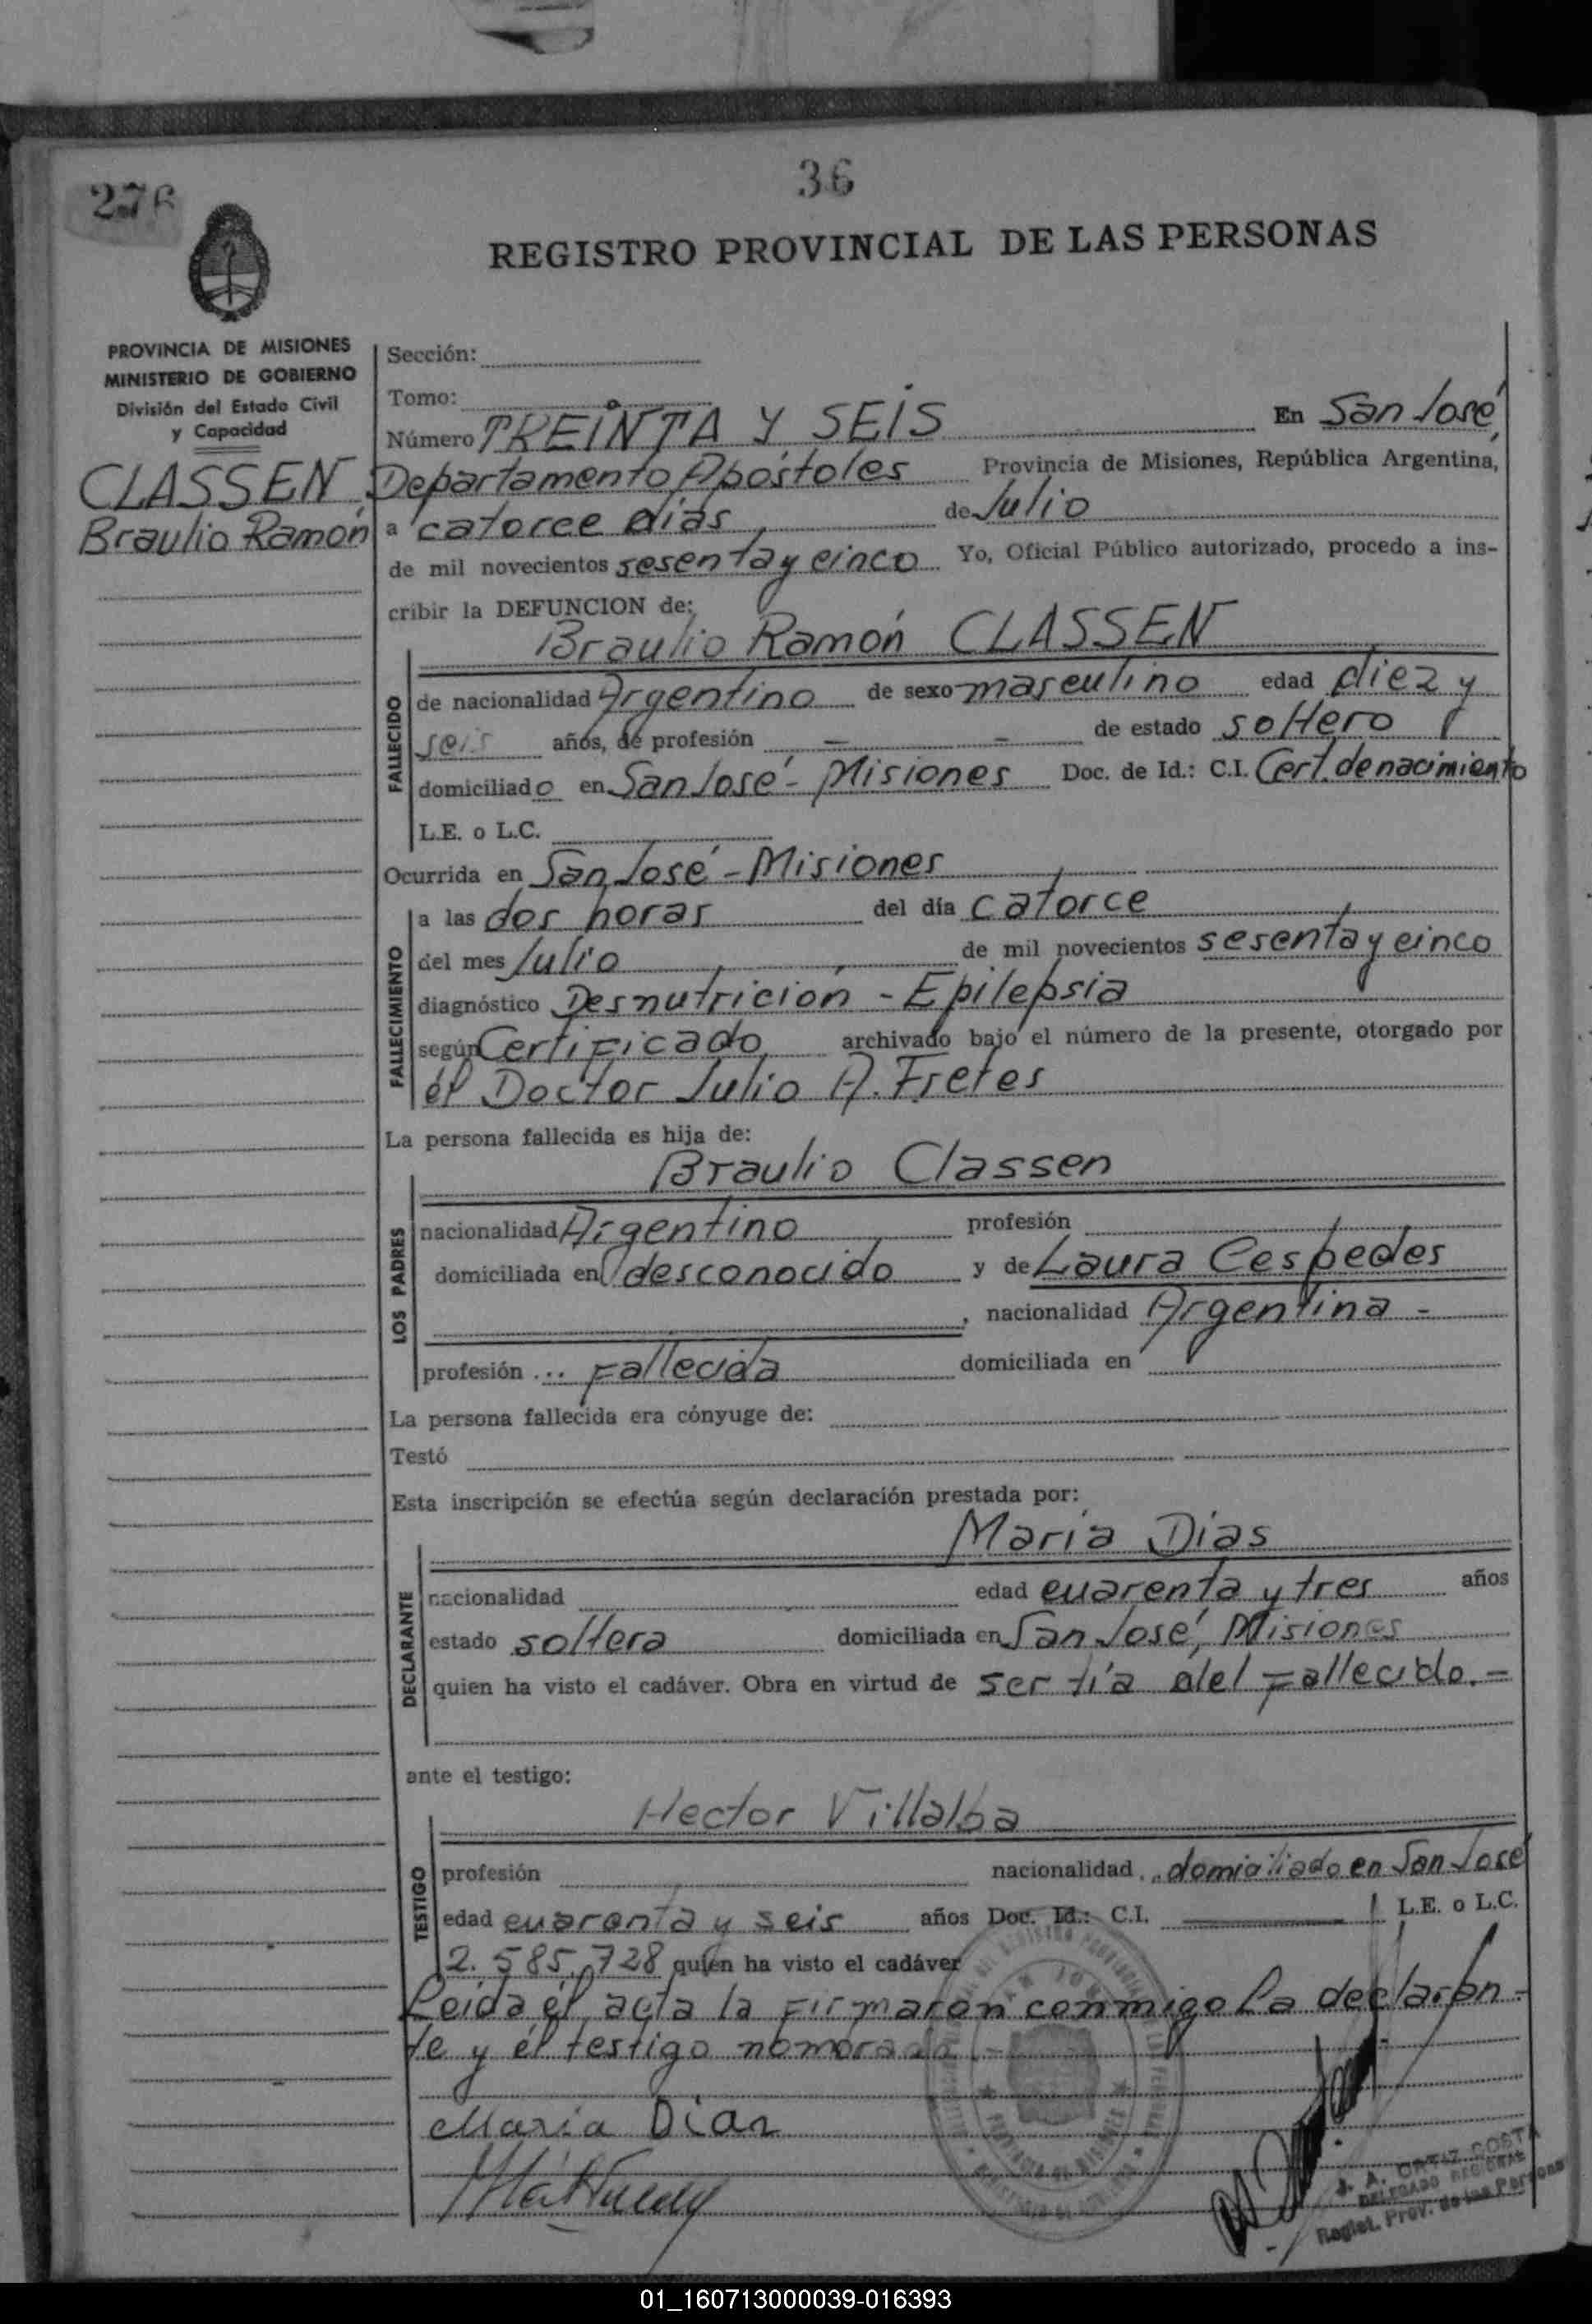 276
36
REGISTRO PROVINCIAL DE LAS PERSONAS
PROVINCIA DE MISIONES
MINISTERIO DE GOBIERNO
División del Estado Civil
y Capacidad
CLASSEN
Braulio Ramón
Sección:
Tomo:
Número TREINTA Y SEIS En San José,
Departamento Apóstoles Provincia de Misiones, República Argentina,
a catorce dias de Julio
de mil novecientos sesenta y cinco Yo, Oficial Público autorizado, procedo a ins-
cribir la DEFUNCION de:
Braulio Ramón CLASSEN
FALLECIDO
de nacionalidad Argentino de sexo masculino edad diez y
seis años, de profesión — — de estado soltero
domiciliado en San José - Misiones Doc. de Id.: C.I. Cert. de nacimiento
L.E. o L.C.
Ocurrida en San José - Misiones
FALLECIMIENTO
a las dos horas del día catorce
del mes Julio de mil novecientos sesenta y cinco
diagnóstico Desnutrición - Epilepsia
según Certificado archivado bajo el número de la presente, otorgado por
él Doctor Julio A. Fretes
La persona fallecida es hija de:
Braulio Classen
LOS PADRES
nacionalidad Argentino profesión
domiciliada en desconocido y de Laura Cespedes
, nacionalidad Argentina -
profesión ... Fallecida domiciliada en
La persona fallecida era cónyuge de:
Testó
Esta inscripción se efectúa según declaración prestada por:
Maria Dias
DECLARANTE
nacionalidad edad cuarenta y tres años
estado soltera domiciliada en San José, Misiones
quien ha visto el cadáver. Obra en virtud de ser tía del Fallecido. -
ante el testigo:
Hector Villalba
TESTIGO
profesión nacionalidad domiciliado en San José
edad cuarenta y seis años Doc. Id.: C.I. L.E. o L.C.
2.585.728 quien ha visto el cadáver
Leida él acta la Firmaron conmigo la declaran-
te y él testigo
Maria Diaz
J. A. ORTIZ COSTA
DELEGADO REGIONAL
Regist. Prov. de las Personas
01_160713000039-016393